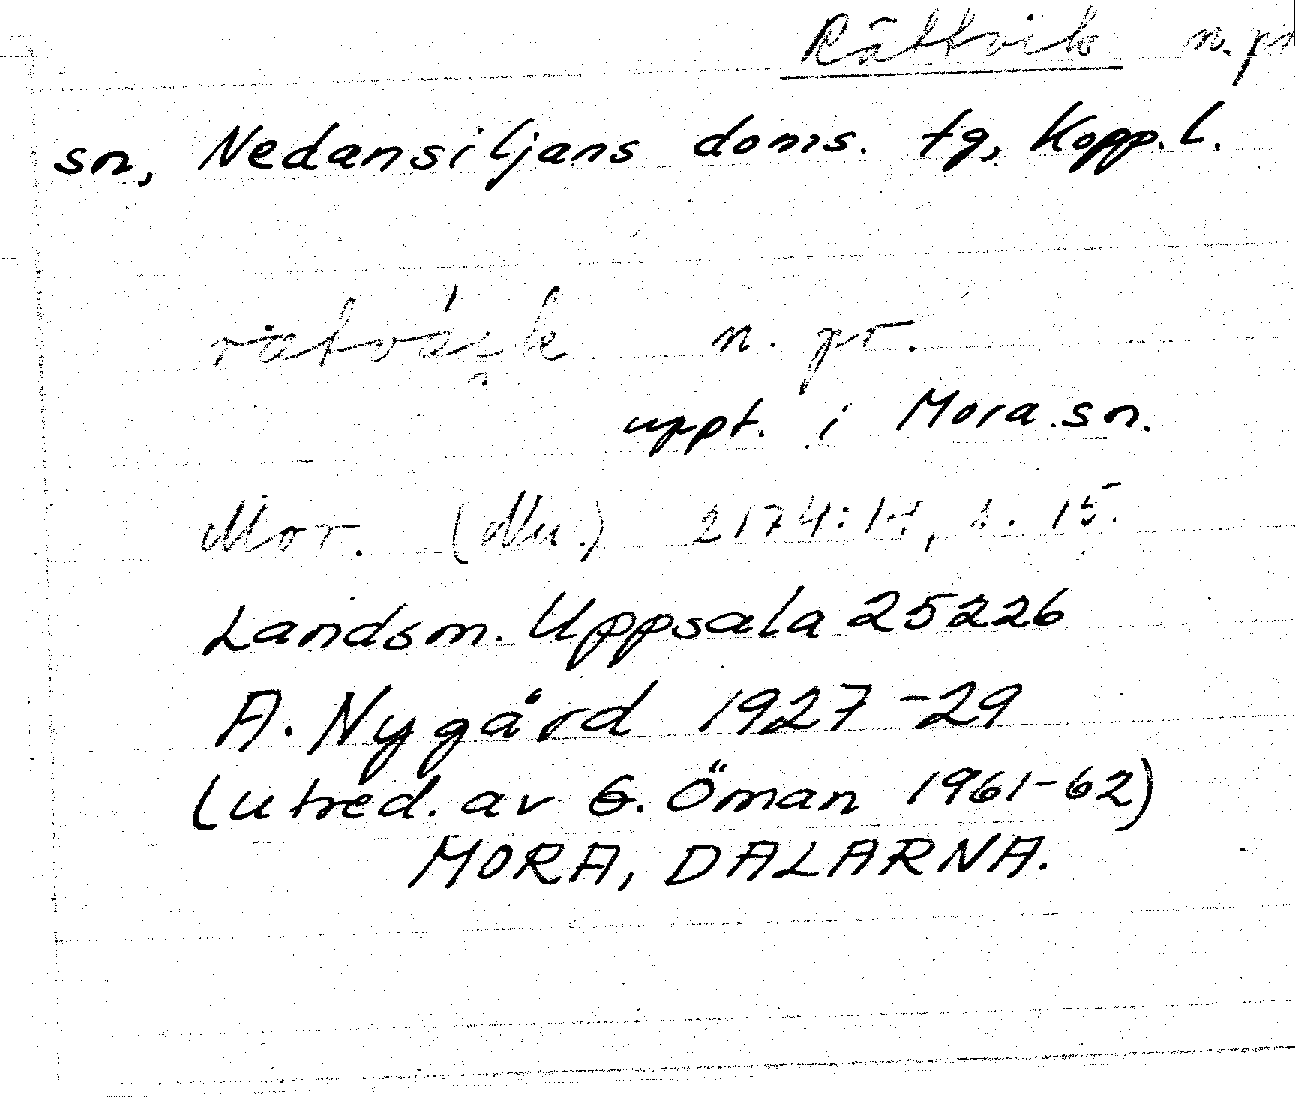 Rättvik n. pr
sn, Nedansiljans doms. tg, Kopp. l.
n. pr.
uppt. i Mora sn.
Mor. (Mu.) 2174:14, s. 15.
Landsm. Uppsala 25226
A. Nygård 1927-29
(utred. av G. Öman 1961-62)
MORA, DALARNA.